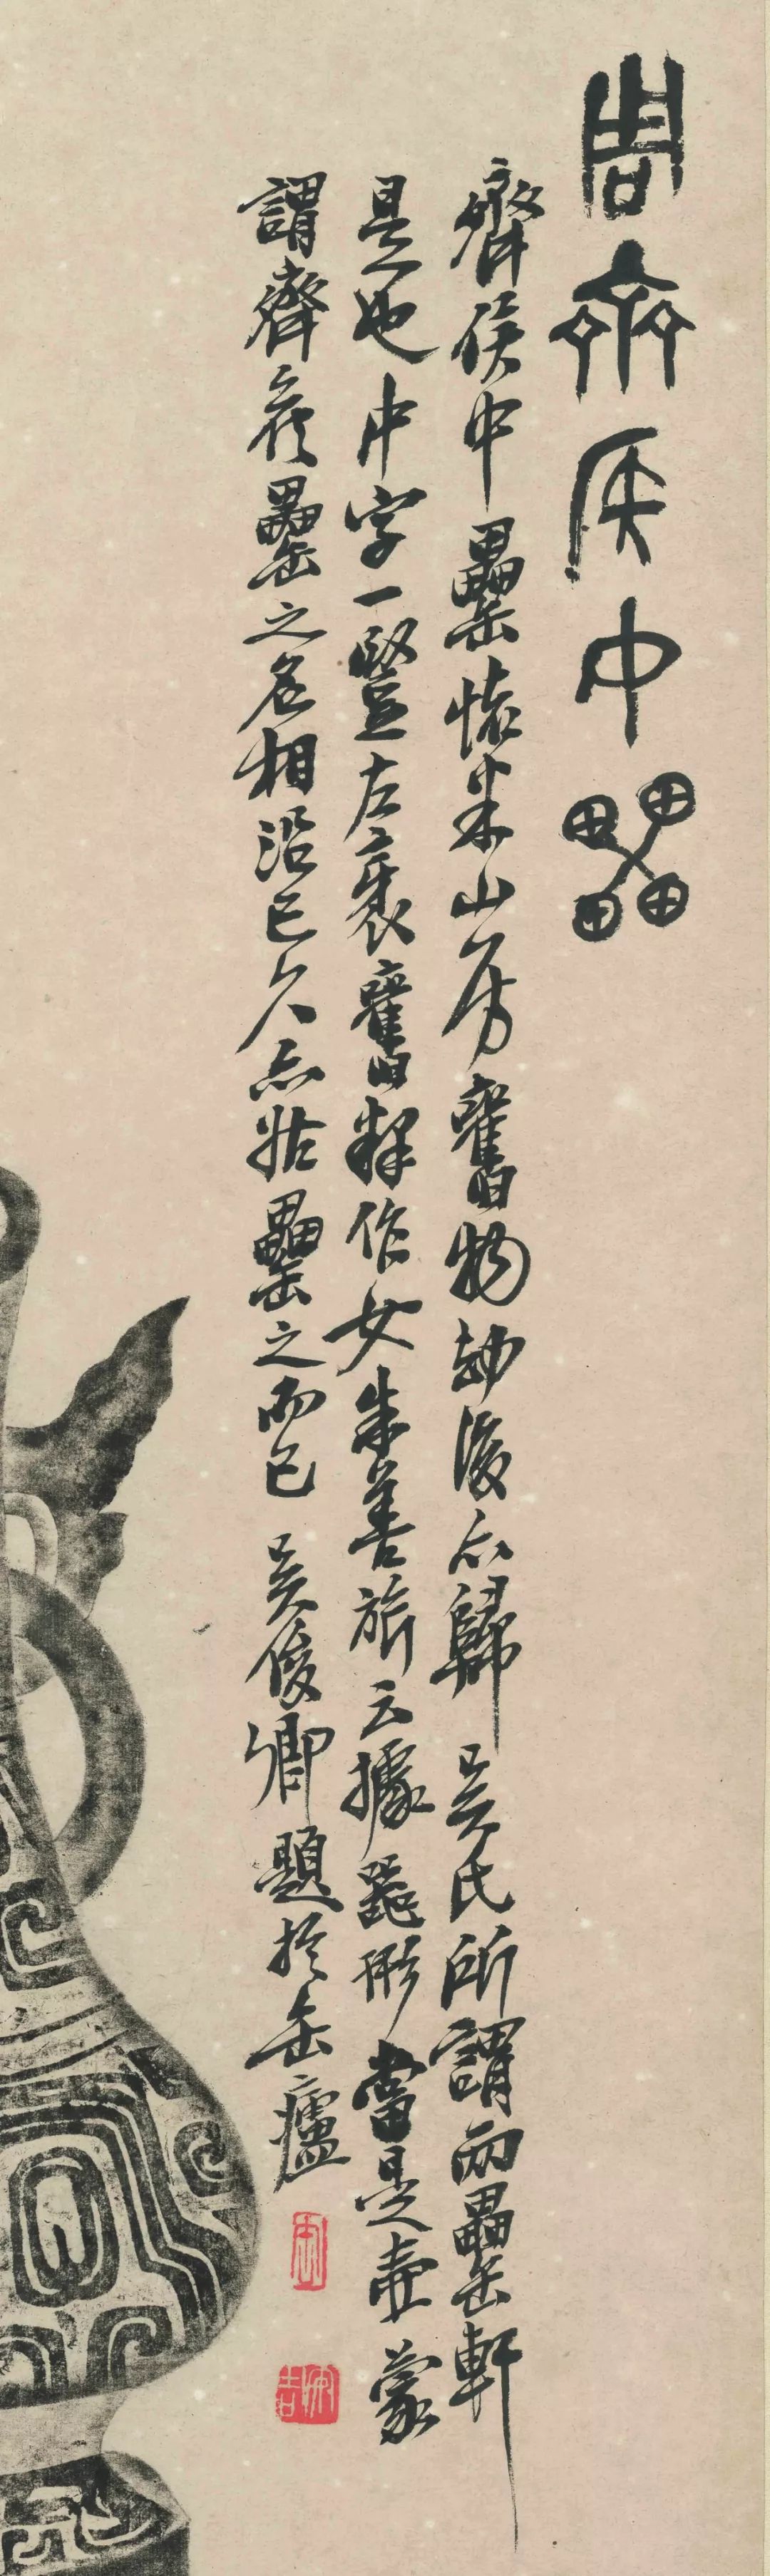 周齊侯中罍
齊侯中罍懷米山房舊物劫後亦歸吳氏所謂兩罍軒
是也中字一豎左裹舊釋作女朱善旂云據器形當是壺蒙
謂齊侯罍之名相沿已久亦姑罍之而已 吳俊卿題於缶廬